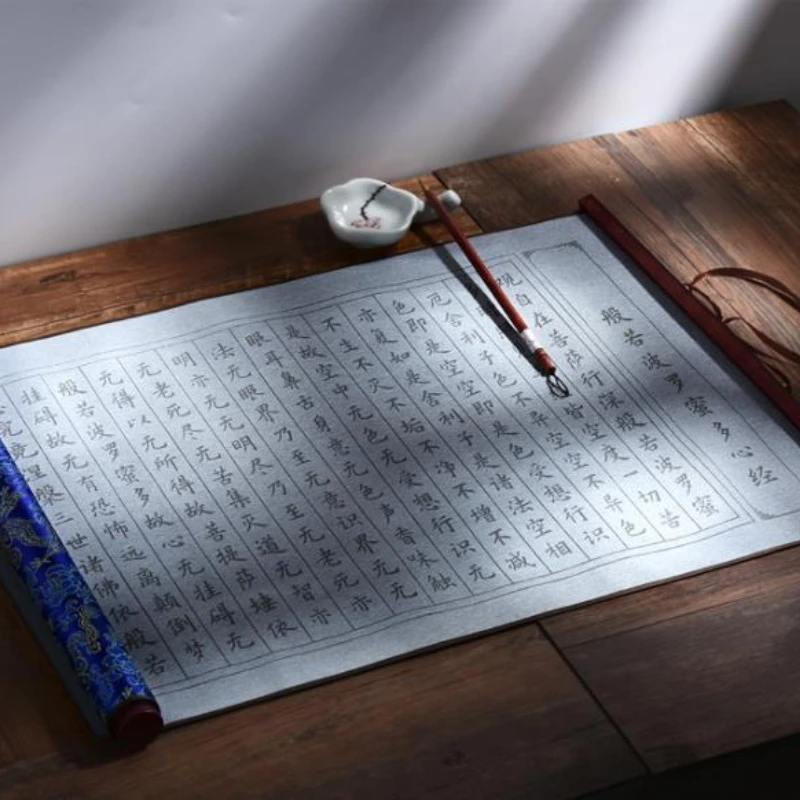 般若波罗蜜多心经
观自在菩萨行深般若波罗蜜
皆空度一切苦
厄舍利子色不异空空不异色
色即是空空即是色受想行识
亦复如是舍利子是诸法空相
不生不灭不垢不净不增不减
是故空中无色无受想行识无
眼耳鼻舌身意无色声香味触
法无眼界乃至无意识界无无
明亦无无明尽乃至无老死亦
无老死尽无苦集灭道无智亦
无得以无所得故菩提萨埵依
般若波罗蜜多故心无挂碍无
挂碍故无有恐怖远离颠倒梦
究竟涅槃三世诸佛依般若